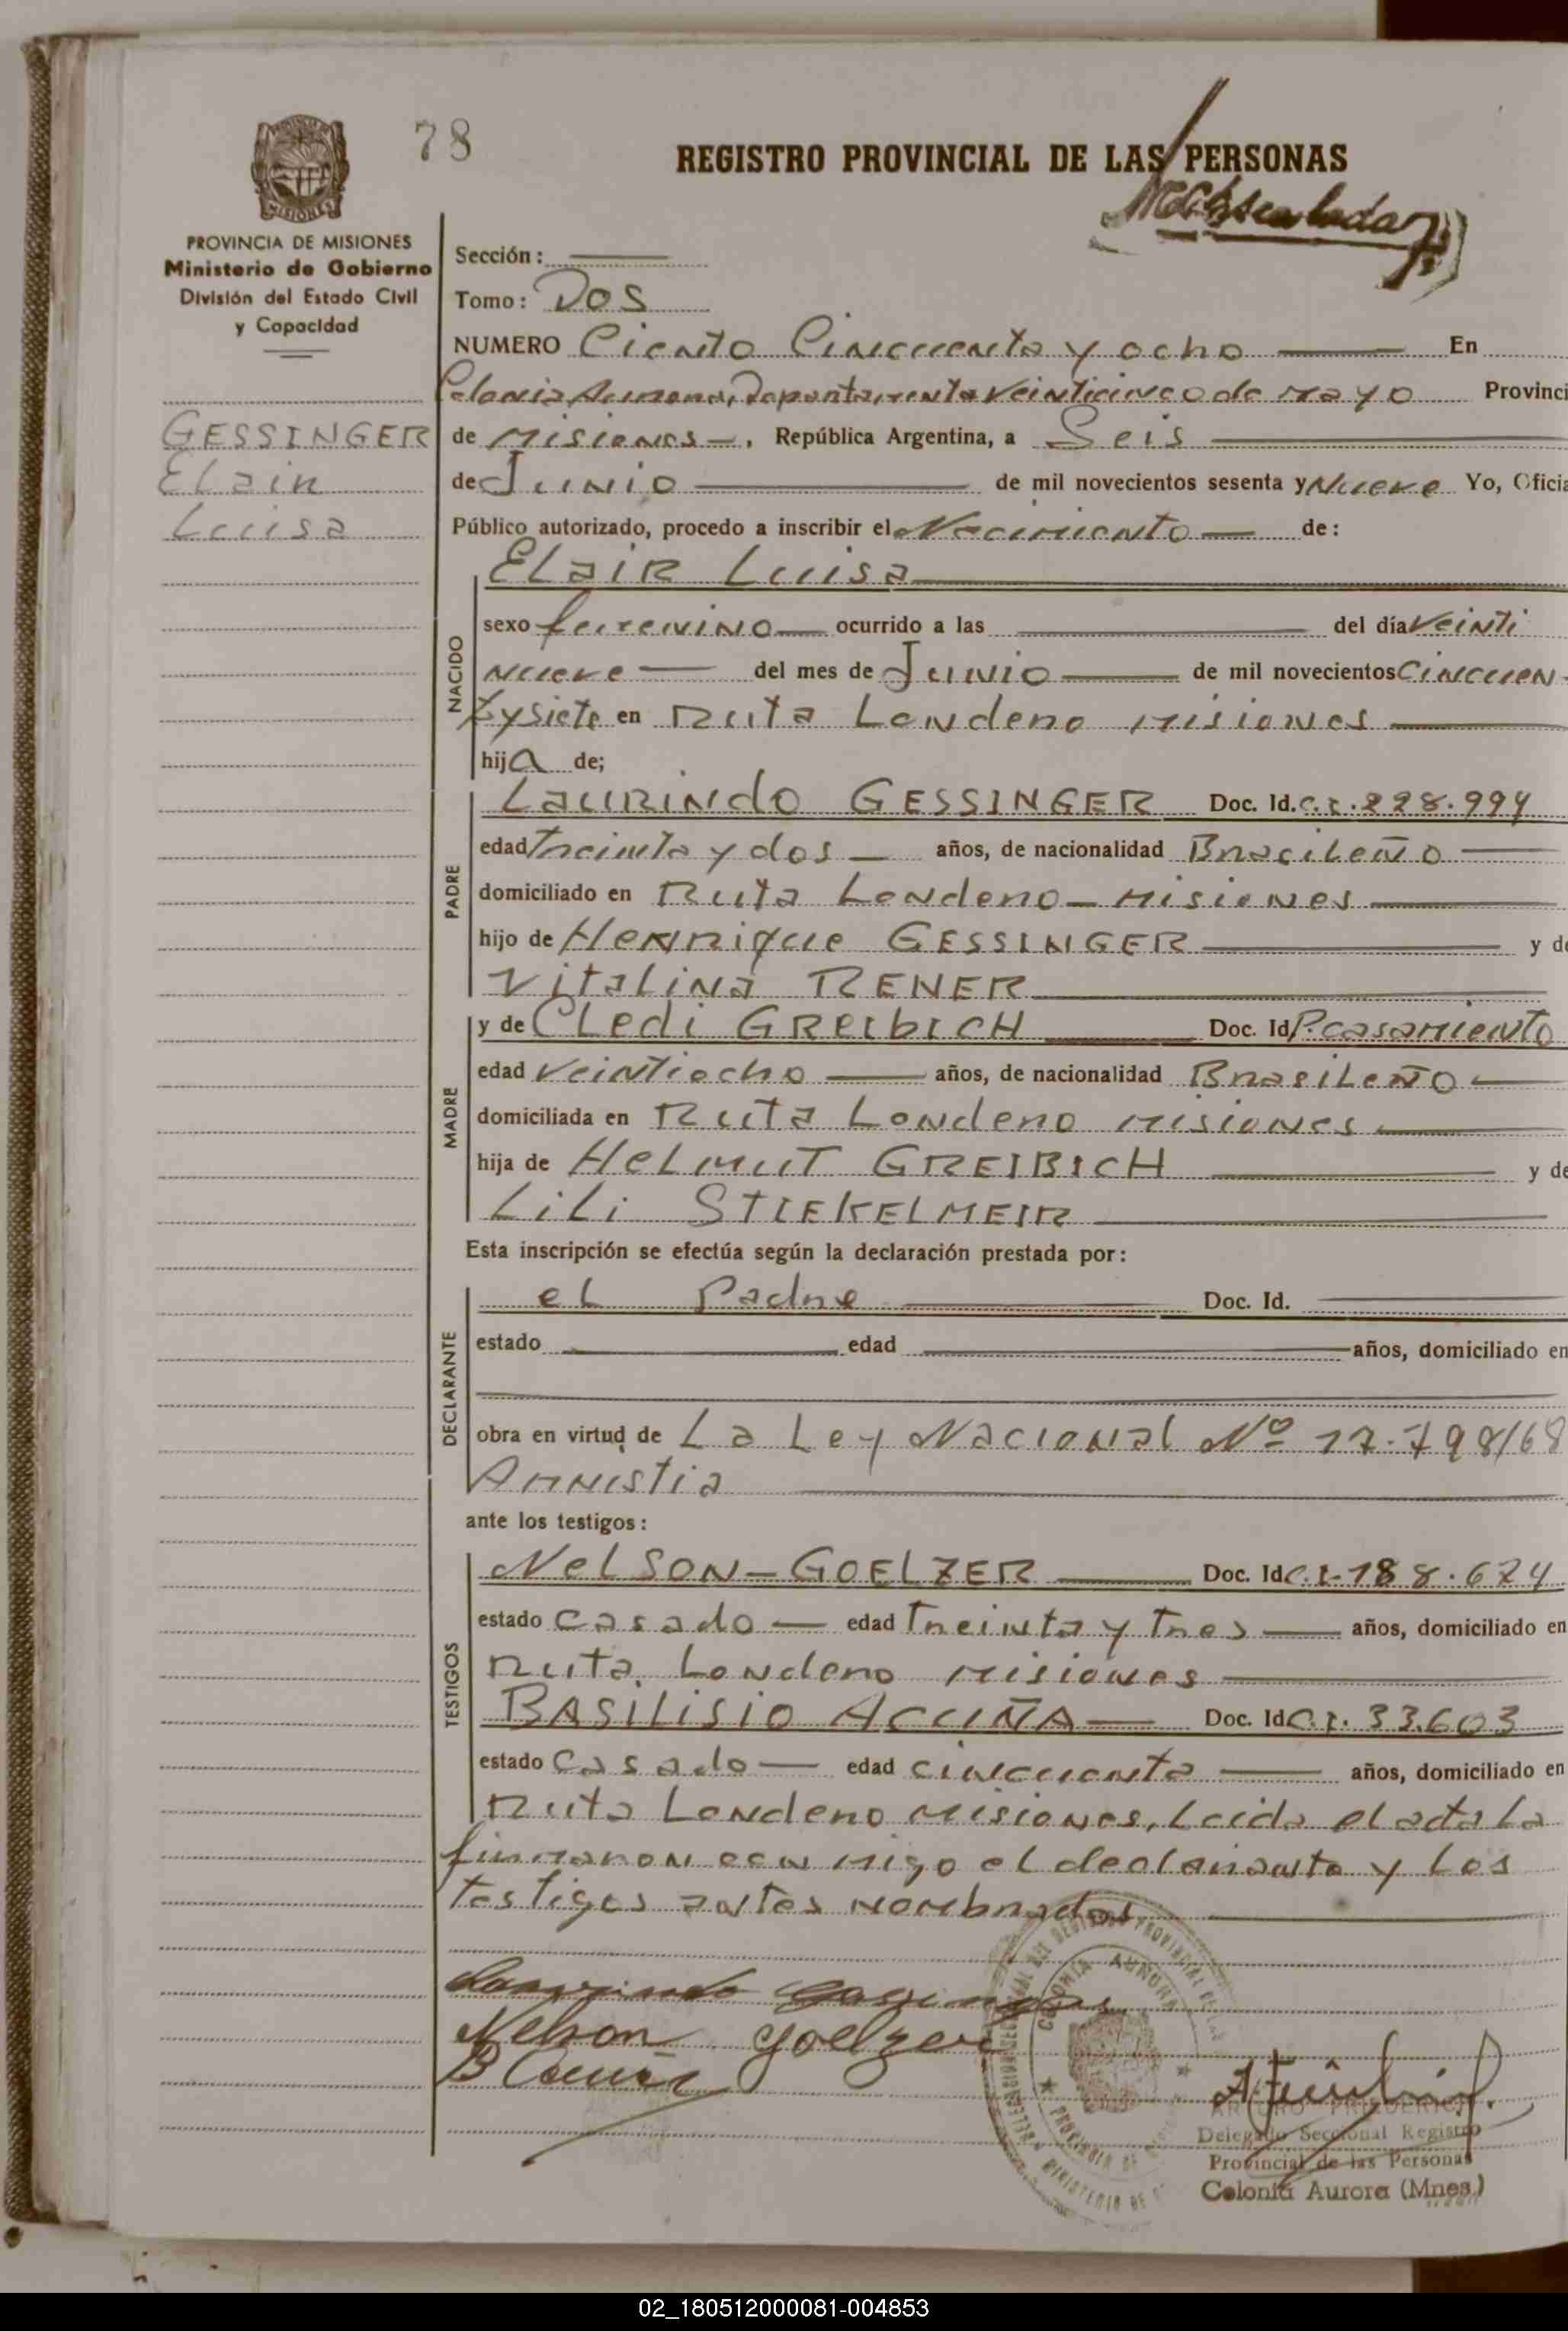 78
REGISTRO PROVINCIAL DE LAS PERSONAS
PROVINCIA DE MISIONES
Ministerio de Gobierno
División del Estado Civil
y Capacidad
GESSINGER
Elain
Luisa
Sección:
Tomo: Dos
NUMERO Ciento Cincuenta y ocho En
Colonia Aurora, Departamento Veinticinco de mayo Provinci
de Misiones, República Argentina, a Seis
de Junio de mil novecientos sesenta y Nueve Yo, Oficia
Público autorizado, procedo a inscribir el Nacimiento de:
Elair Luisa
NACIDO
sexo femenino ocurrido a las del día Veinti
nueve del mes de Junio de mil novecientos Cincuen
ta y siete en Ruta Londero Misiones
hija de;
PADRE
Laurindo GESSINGER Doc. Id. C.I. 228.994
edad Treinta y dos años, de nacionalidad Brasileño
domiciliado en Ruta Londero - Misiones
hijo de Henrique GESSINGER y de
Vitalina RENER
MADRE
y de Cledi GREIBICH Doc. Id P. casamiento
edad Veintiocho años, de nacionalidad Brasileño
domiciliada en Ruta Londero Misiones
hija de Helmut GREIBICH y de
Lili STIEKELMEIR
Esta inscripción se efectúa según la declaración prestada por:
DECLARANTE
el Padre Doc. Id.
estado edad años, domiciliado en
obra en virtud de La Ley Nacional Nº 17.798/68
Amnistia
ante los testigos:
TESTIGOS
Nelson - GOELZER Doc. Id C.I. 188.674
estado Casado edad Treinta y Tres años, domiciliado en
Ruta Londero Misiones
BASILISIO ACUÑA Doc. Id C.I. 33.603
estado Casado edad cincuenta años, domiciliado en
Ruta Londero Misiones, Leida el acta la
firmaron con migo el declarante y los
testigos antes nombrados
Laurindo Gessinger
Nelson Goelzer
B Acuña
COLONIA AURORA
ARTURO FRIEDERICH
Delegado Seccional Registro
Provincial de las Personas
Colonia Aurora (Mnes.)
02_180512000081-004853